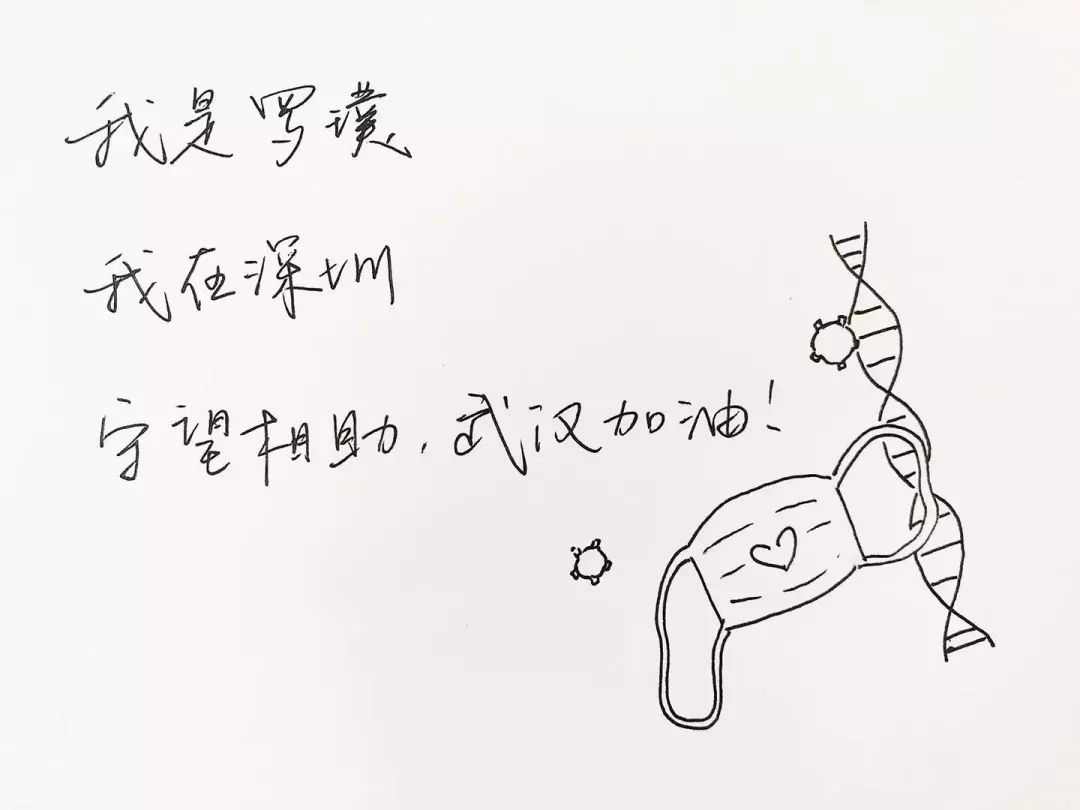 我是罗璞
我在深圳
守望相助,武汉加油!